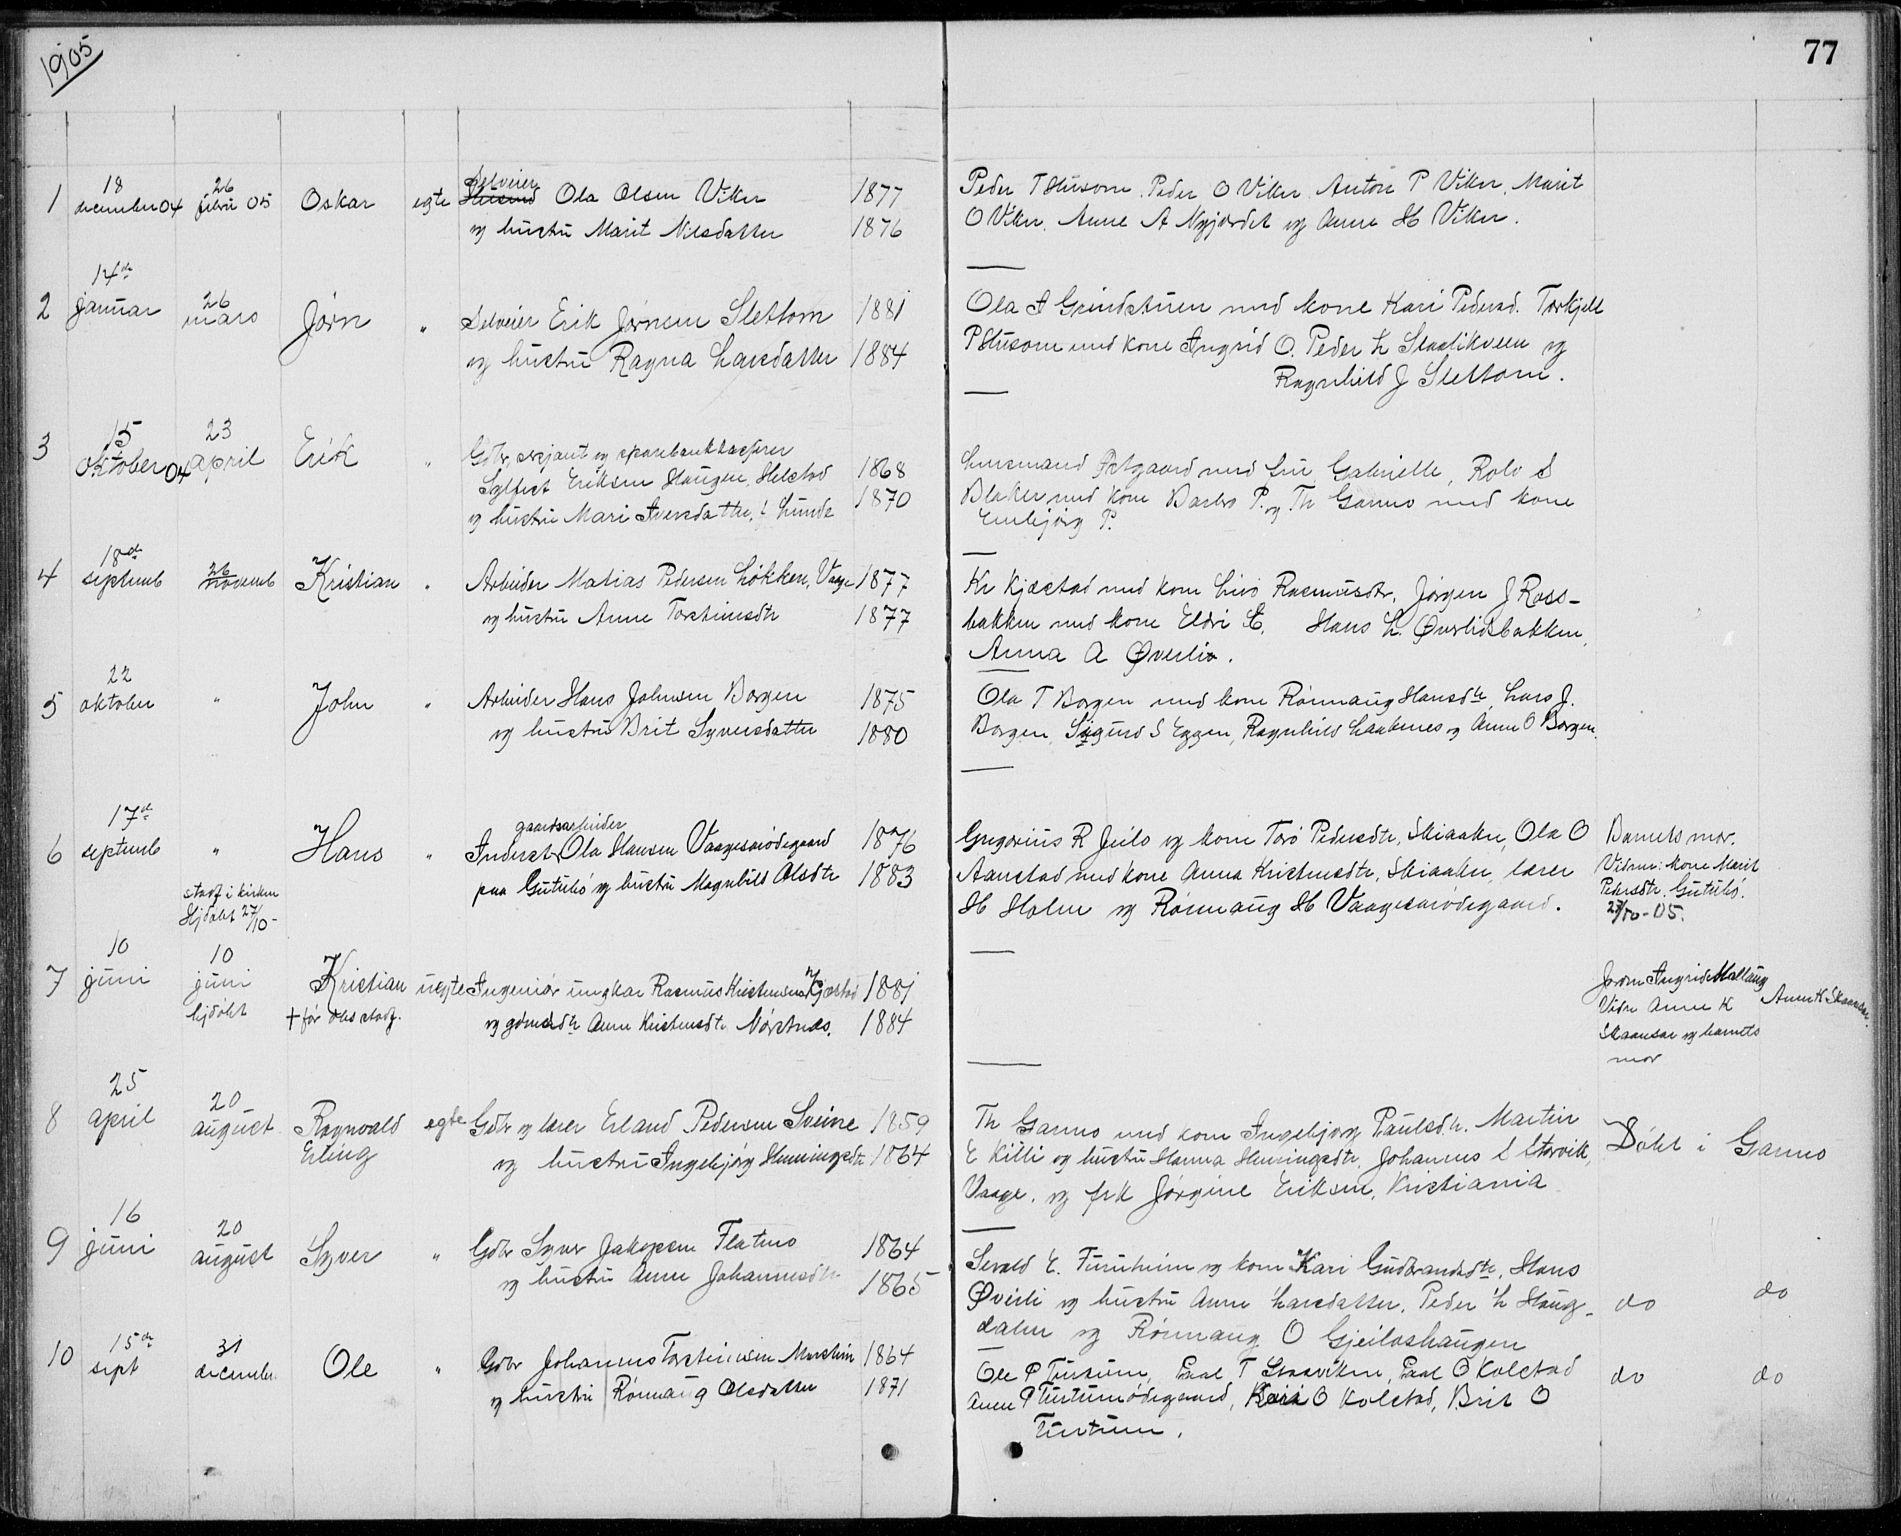 1905
77
1 18 december 04 26 febru 05 Oskar egte Selveier Husmd Ola Olsen Viken 1877
og hustru Marit Nilsdatter 1876
Peder T Husom. Peder O Viken. Anton P Viken. Marit
O Viken. Anne A Nyjordet og Anne H Viken.
2 14de januar 26 mars Jörn " Selveier Erik Jörnsen Slettom 1881
og hustru Ragna Larsdatter 1884
Ola Grindstuen med kone Kari Pedersd. Torkjell
P Husom med kone Ingrid O. Peder L og
Ragnhild J Slettom.
3 15 Oktober 04 23 april Erik " Gdbr, serjant og sparebankkasserer
Sylfest Eriksen Haugen, Helstad 1868
og hustru Mari Iversdatter, f Lunde 1870
Lensmand med fru Gabrielle, Rolv S
Blaker med kone Barbro P. og Th Garmo med kone
Embjörg P.
4 18de septemb 26 novemb Kristian " Arbeider Matias Pedersen Lökken, Vaage 1877
og hustru Anne Torstensdtr 1877
Kr Kjæstad med kone Livö Rasmusdtr, Jörgen J Ross-
bakken med kone Eldri Hans L. Øverlidsbakken,
Anna A Øverliö.
5 22 oktober " John " Arbeider Hans Johnsen Borgen 1875
og hustru Brit Syversdatter 1880
Ola T Borgen med kone Rönnaug Hansdtr, Lars J.
Borgen, Sigurd S Eggen, Ragnhild og Anne O Borgen.
6 17de septemb " Hans " gaardsarbeider
Inderst Ola Hansen Vaagesarödegaard 1876
paa Gutubö og hustru Magnhild Olsdtr 1883
stadf i kirken
Hjdöbt 27/10 -
Gregorius R Jeilo og kone Torö Pedersdtr, Skiaaker, Ola O
Aanstad med kone Anna Kristensdtr, Skiaaker, lærer
H Holm og Rönnaug H Vaagesarödegaard.
Barnets mor.
Vidner: kone Marit
Pedersdtr. Gutubö.
27/10 - 05.
7 10 juni 10 juni Kristian uegte Ingeniör ungkar Rasmus Kristensen Kjæstad 1881
hjdöbt † för dbs stadf. og gdmdtr Anne Kristensdtr Nörstnes. 1884
Jordm Ingrid Mallaug
Vidn Anne K Anne K Skaansar.
Skaansar og barnets
mor
8 25 april 20 august Ragnvald egte Gdbr og lærer Erland Pedersen Sveine 1859
Erling og hustru Ingebjörg Hemingsdtr 1864
Th Garmo med kone Ingebjørg Paulsdtr. Martin
E Killi og hustru Hanna Hemingsdtr, Johannes L Storvik,
Vaage, og frk Jörgine Eriksen, Kristiania
Döbt i Garmo
9 16 juni 20 august Syver " Gdbr Syver Jakopsen Flatmo 1864
og hustru Anne Johannesdtr 1865
Sevald E. Furuheim og kone Kari Gudbrandsdtr, Hans
Øverli og hustru Anne Larsdatter, Peder L Haug-
dalen og Rönnaug O Gjeiloshaugen
do do
10 15de sept 31 december Ole " Gdbr Johannes Torsteinsen Marstein 1864
og hustru Rönnaug Olsdatter 1871
Ole P Turtum, Paal T Storviken, Paal O Kolstad
Anne P Turtumödegaard, Kari O Kolstad, Brit O
Turtum.
do do